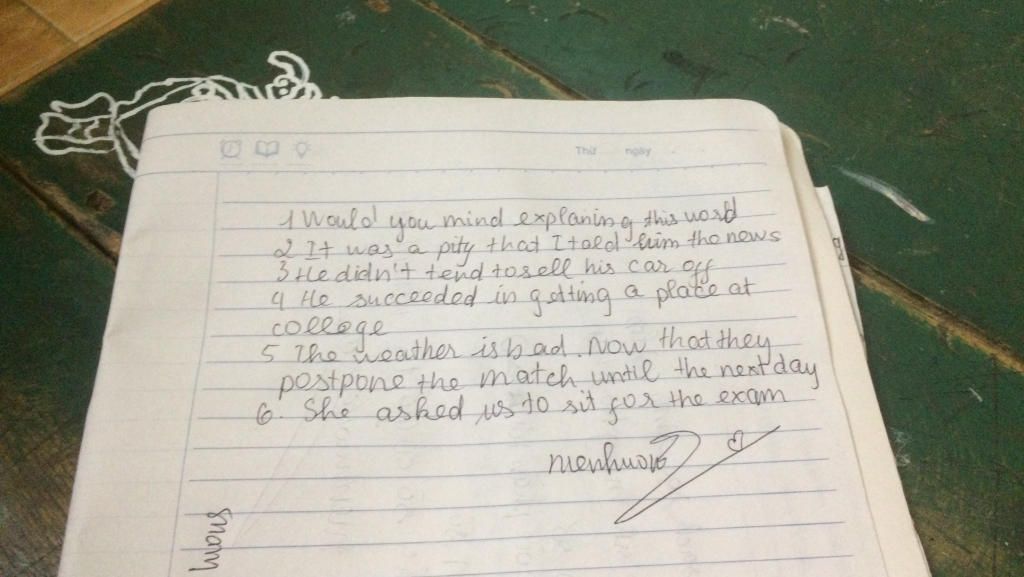 Thứ ngày
1 Would you mind explaning this word
2 It was a pity that I told him the news
3 He didn't tend to sell his car off
4 He succeeded in getting a place at
college
5 The weather is bad. Now that they
postpone the match until the next day
6. She asked us to sit for the exam